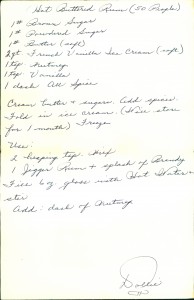 Hot Buttered Rum (50 People)
1# Brown Sugar
1# Powdered Sugar
1# Butter (soft)
2 qt French Vanilla Ice Cream (soft)
1 tsp Nutmeg
1 tsp Vanilla
1 dash All Spice
Cream butter & sugars. Add spices.
Fold in ice cream. (Will store
for 1 month) Freeze
Use:
2 heaping tsp. Mix
1 Jigger Rum & splash of Brandy
Fill 6 oz glass with Hot Water &
stir
Add dash of Nutmeg
Dollie